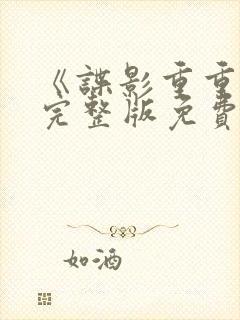 《諜影重重
完整版免費
如酒